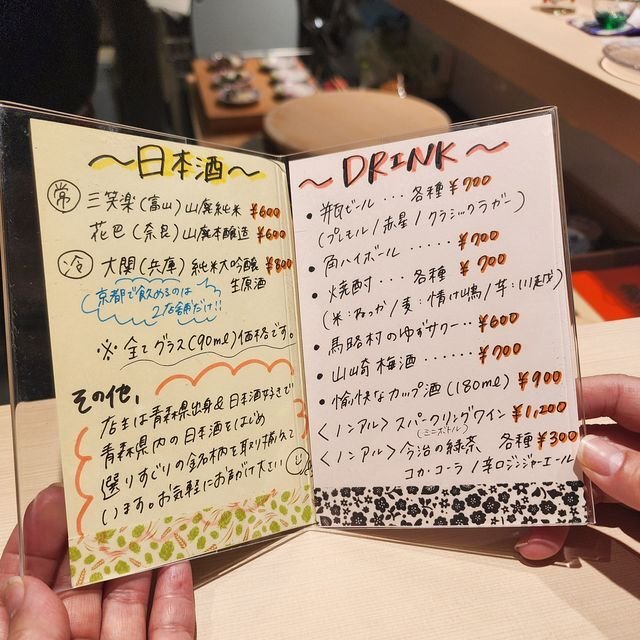 〜日本酒〜
常 三笑楽(富山)山廃純米 ¥600
花巴(奈良)山廃本醸造 ¥600
冷 大関(兵庫)純米大吟醸 ¥800
生原酒
京都で飲めるのは
2店舗だけ!!
※全てグラス(90ml)価格です。
その他、
店主は青森県出身&日本酒好きで
青森県内の日本酒をはじめ
選りすぐりの銘柄を取り揃えて
います。お気軽にお声がけ下さい
〜DRINK〜
• 瓶ビール…各種 ¥700
(プレモル/赤星/クラシックラガー)
• 角ハイボール……¥700
• 焼酎…各種 ¥700
(米:鳥飼/麦:情け嶋/芋:川越)
• 馬路村のゆずサワー…¥600
• 山崎梅酒……¥700
• 愉快なカップ酒(180ml) ¥900
〈ノンアル〉スパークリングワイン ¥1,200
(ミニボトル)
〈ノンアル〉今治の緑茶 各種 ¥300
コカ・コーラ/辛口ジンジャーエール